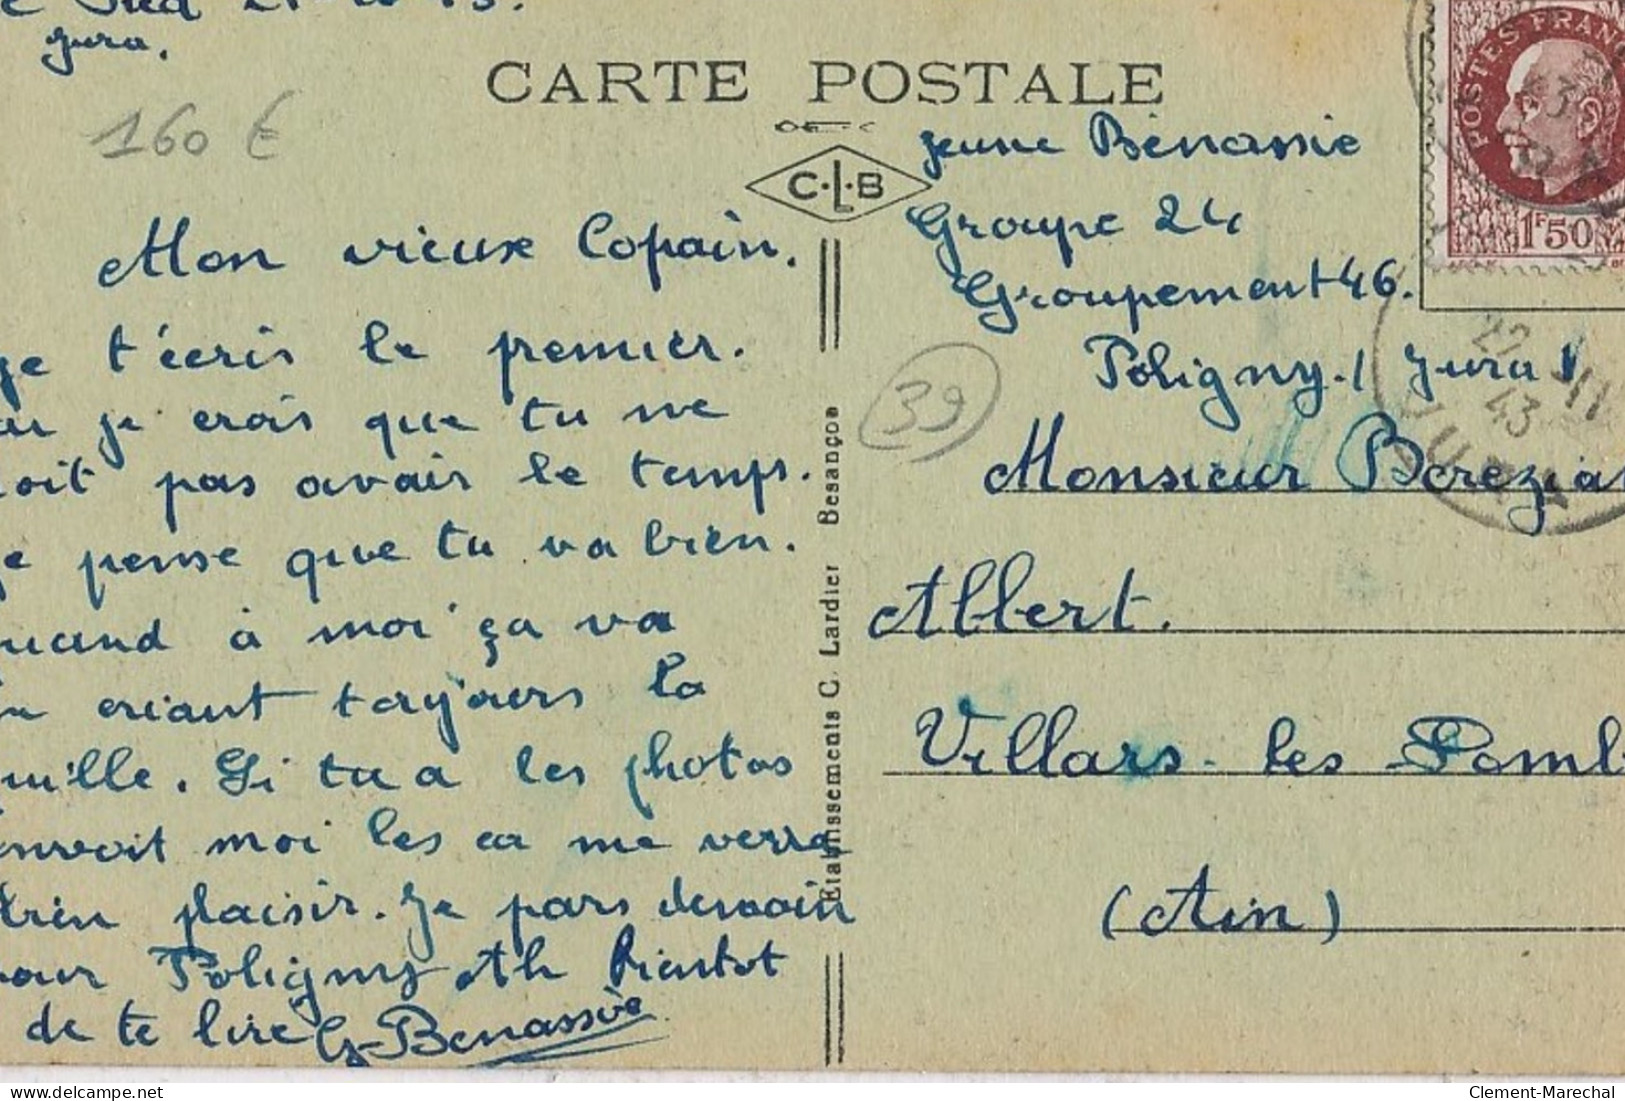 Jura.
160 €
CARTE POSTALE
C.L.B
Mon vieux Copain.
je t'écris le premier.
car je crois que tu ne
doit pas avair le temps.
je pense que tu va bien.
quand à moi ça va
en criant toujours la
quille. Si tu a les photos
envoit moi les ca me verra
trèn plaisir. Je pars demain
pour Poligny Ah Bientot
de te lire G Benassée
Etablissements C. Lardier Besançon
jeune Bénassie
Groupe 24
Groupement 46.
Poligny. (Jura)
39
Monsieur Berezia
Albert.
Villars-les Domb
(Ain)
POSTES FRANC
1F50
22
43
JURA
Clement-Marechal